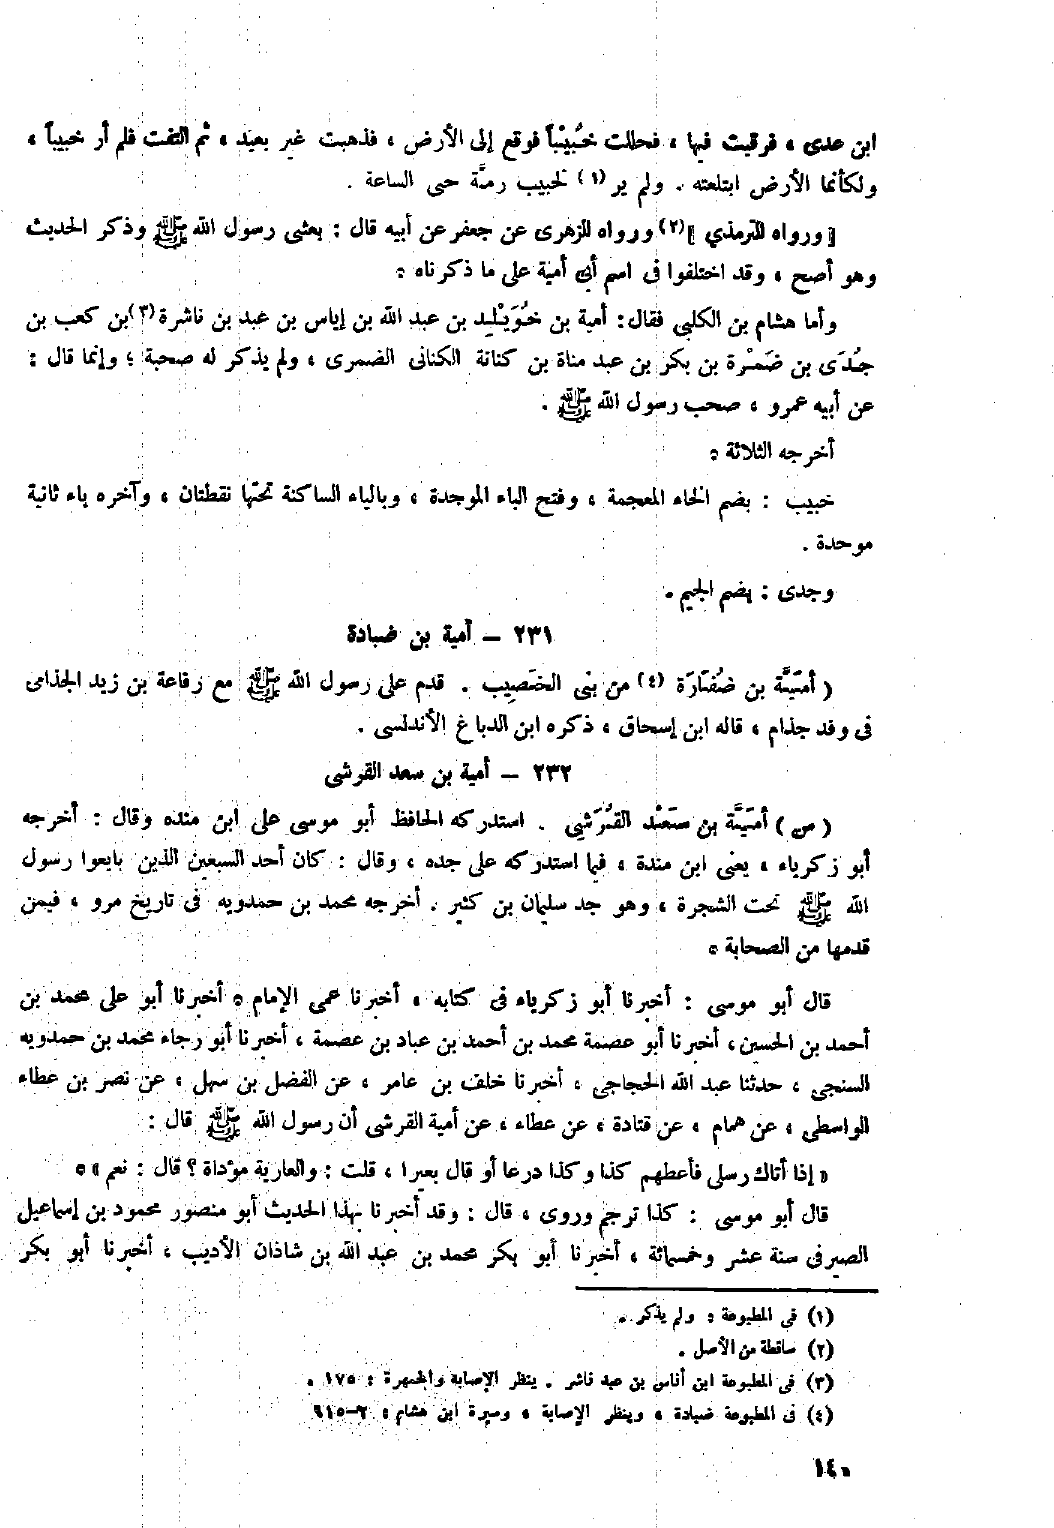 ابن عدى ، فرقيت فيها ، فحللت خُبيباً فوقع إلى الأرض ، فذهبت غير بعيد ، ثم التفت فلم أر خبيباً ،
ولكأنما الأرض ابتلعته . ولم ير (١) لخبيب رمَّة حتى الساعة .
[ ورواه الترمذي ] (٢) ورواه الزهرى عن جعفر عن أبيه قال : بعثنى رسول الله ﷺ وذكر الحديث
وهو أصح ، وقد اختلفوا فى اسم أبى أمية على ما ذكرناه :
وأما هشام بن الكلبي فقال : أمية بن خُوَيْلِد بن عبد الله بن إياس بن عبد بن ناشرة (٣) بن كعب بن
جُدَى بن ضَمْرة بن بكر بن عبد مناة بن كنانة الكنانى الضمرى ، ولم يذكر له صحبة ؛ وإنما قال :
عن أبيه عمرو ، صحب رسول الله ﷺ .
أخرجه الثلاثة :
خبيب : بضم الخاء المعجمة ، وفتح الباء الموحدة ، وبالياء الساكنة تحتها نقطتان ، وآخره باء ثانية
موحدة .
وجدى : بضم الجيم .
٢٣١ – أمية بن ضبادة
( أُمَيَّة بن ضُفَارَة (٤) من بنى الخَصِيب . قدم على رسول الله ﷺ مع رفاعة بن زيد الجذامى
فى وفد جذام ، قاله ابن إسحاق ، ذكره ابن الدباغ الأندلسى .
٢٣٢ – أمية بن سعد القرشى
( س ) أُمَيَّة بن سَعْد القُرَشِي . استدركه الحافظ أبو موسى على ابن منده وقال : أخرجه
أبو زكرياء ، يعنى ابن مندة ، فيما استدركه على جده ، وقال : كان أحد السبعين الذين بايعوا رسول
الله ﷺ تحت الشجرة ، وهو جد سليمان بن كثير . أخرجه محمد بن حمدويه فى تاريخ مرو ، فيمن
قدمها من الصحابة :
قال أبو موسى : أخبرنا أبو زكرياء فى كتابه ، أخبرنا عمى الإمام : أخبرنا أبو على محمد بن
أحمد بن الحسين ، أخبرنا أبو عصمة محمد بن أحمد بن عباد بن عصمة ، أخبرنا أبو رجاء محمد بن حمدويه
السنجى ، حدثنا عبد الله الحجاجى ، أخبرنا خلف بن عامر ، عن الفضل بن سهل ، عن نصر بن عطاء
الواسطى ، عن همام ، عن قتادة ، عن عطاء ، عن أمية القرشى أن رسول الله ﷺ قال :
« إذا أتاك رسلى فأعطهم كذا وكذا درعا أو قال بعيرا ، قلت : والعارية مؤداة ؟ قال : نعم » :
قال أبو موسى : كذا ترجم وروى ، قال : وقد أخبرنا بهذا الحديث أبو منصور محمود بن إسماعيل
الصيرفى سنة عشر وخمسمائة ، أخبرنا أبو بكر محمد بن عبد الله بن شاذان الأديب ، أخبرنا أبو بكر
(١) فى المطبوعة : ولم يذكر .
(٢) ساقطة من الأصل .
(٣) فى المطبوعة ابن أناس بن عبد ناشر . ينظر الإصابة والجمهرة : ١٧٥ .
(٤) فى المطبوعة ضبادة ، وينظر الإصابة ، وسيرة ابن هشام : ٢-٦١٥
١٤٠